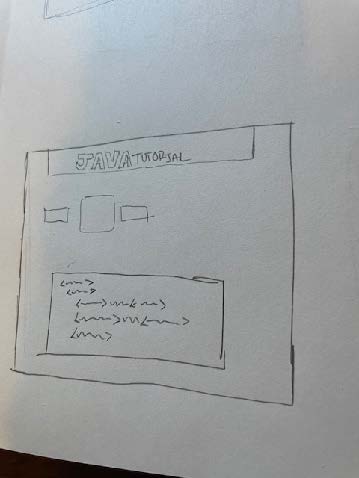 JAVA TUTORIAL